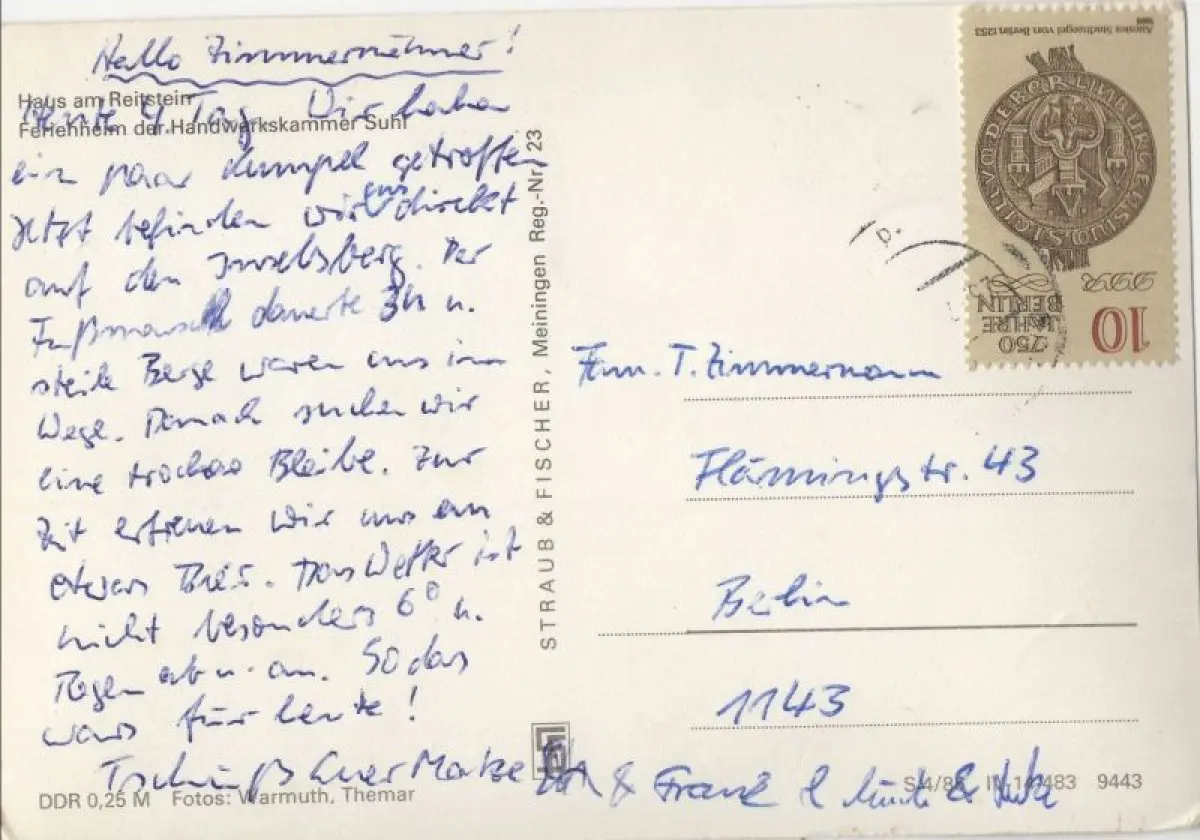 Hallo Zimmermänner!
Haus am Reitstein
Ferienheim der Handwerkskammer Suhl
Heute 4. Tag. Wir haben
ein paar Kumpel getroffen
Jetzt befinden wir uns direkt
auf den Inselsberg. Der
Fußmarsch dauerte 3h u.
steile Berge waren uns im
Wege. Danach suchen wir
eine Bleibe. Zur
Zeit erfreuen wir uns an
etwas Bier. Das Wetter ist
nicht besonders 6° u.
Regen ab u. an. So das
wars für heute!
Tschüß Euer & Frank &
DDR 0,25 M Fotos: Warmuth, Themar
STRAUB & FISCHER, Meiningen Reg.-Nr. 23
Ältestes Stadtsiegel von Berlin 1253
DDR
10
750
JAHRE
BERLIN
Fam. T. Zimmermann
Flämingstr. 43
Berlin
1143
9443